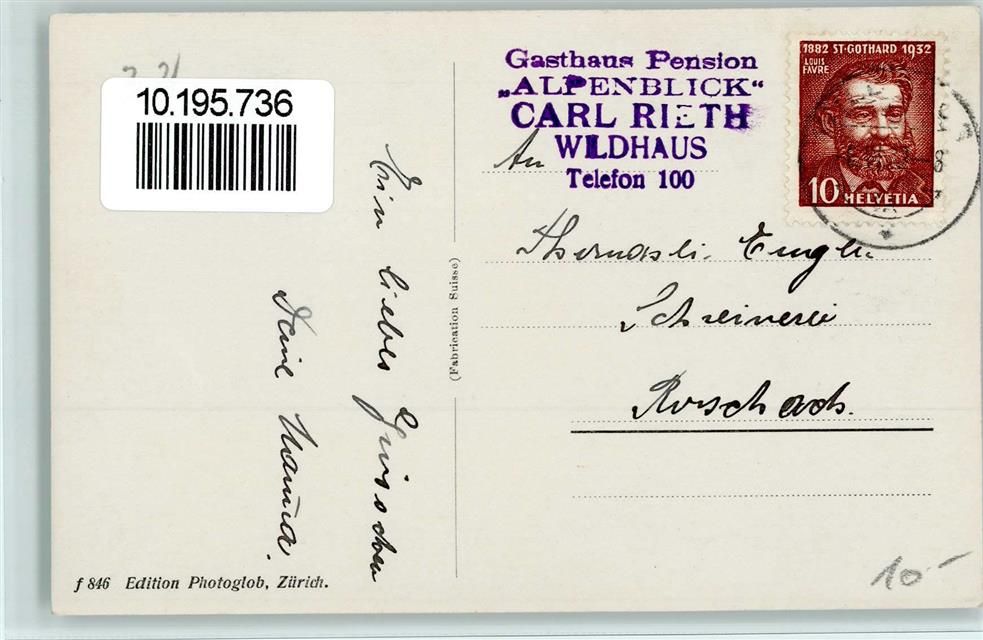 10.195.736
Gasthaus Pension
„ALPENBLICK“
CARL RIETH
WILDHAUS
Telefon 100
1882 ST·GOTHARD 1932
LOUIS
FAVRE
10 HELVETIA
An
Schreinerei
Rorschach.
Ein liebes Grüsschen
Deine Mama.
(Fabrication Suisse)
f 846 Edition Photoglob, Zürich.
10-